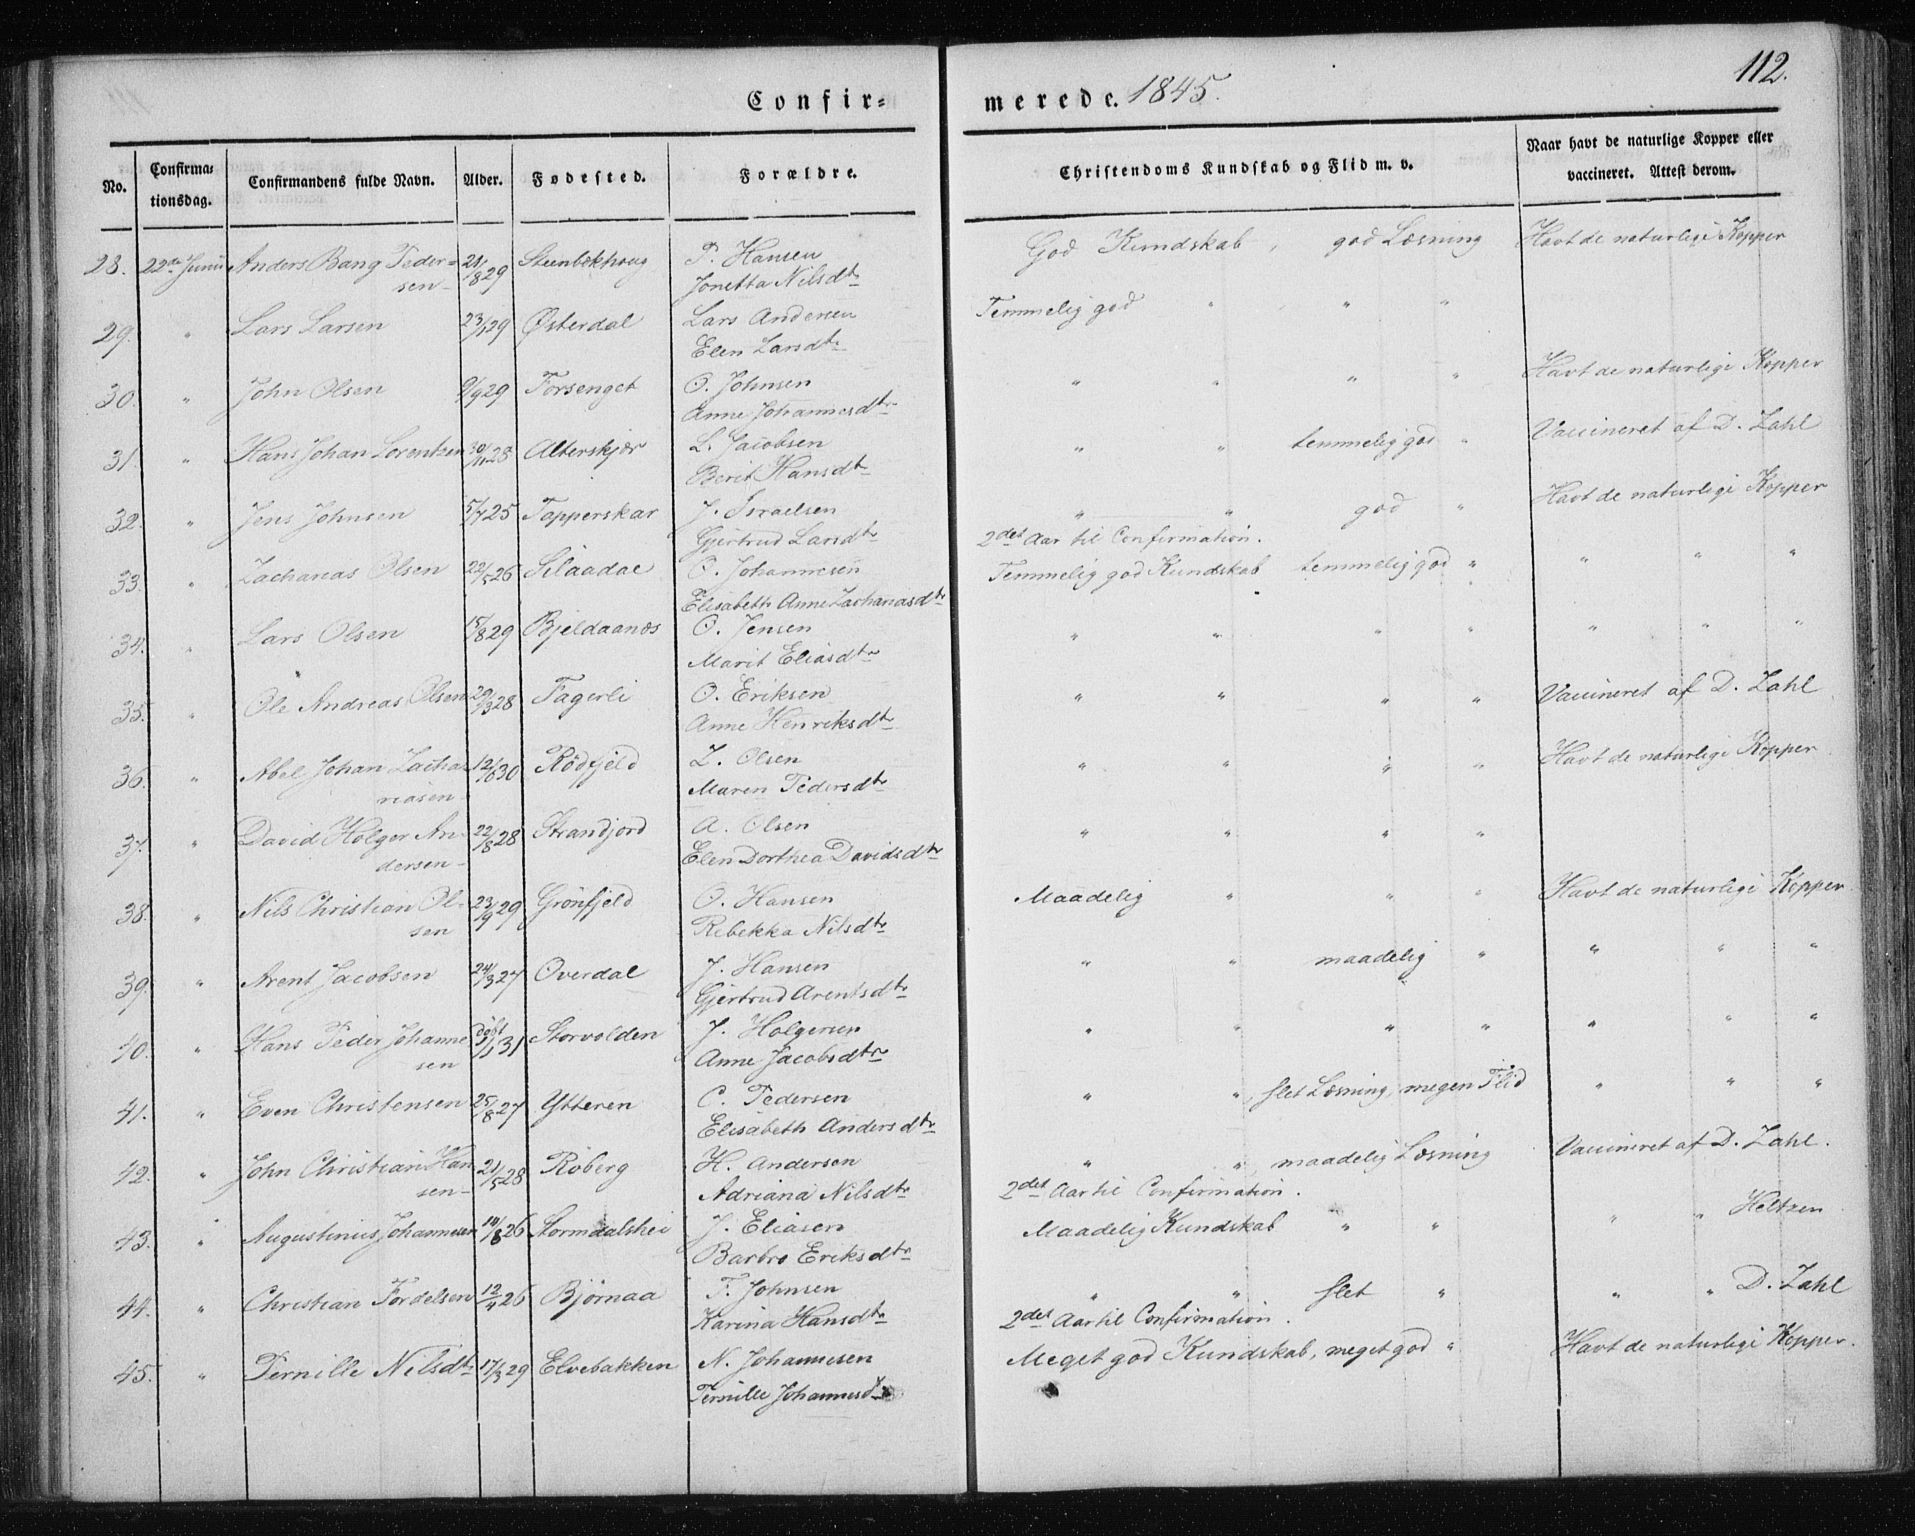 112.
Confir= merede. 1845.
No. Confirma-tionsdag. Confirmandens fulde Navn. Alder. Fødested. Forældre. Christendoms Kundskab og Flid m. v. Naar havt de naturlige Kopper eller vaccineret. Attest derom.
28. 22de Junii Anders Bang Peder= 21/1829 Steenbekhoug P. Hansen God Kundskab, god Læsning Havt de naturlige Kopper
sen Jonetta Nilsdtr
29. " Lars Larsen 23/1 29 Østerdal Lars Andersen Temmelig god " " "
Elen Larsdtr
30. " John Olsen 9/9 29 Forsenget O. Johnsen " " " " Havt de naturlige Kopper
Anne Johannesdtr
31. " Hans Johan Lorentzen 30/11 28 Alterskjær L. Jacobsen " " temmelig god " Vaccineret af D. Zahl
Berit Hansdtr
32. " Jens Johnsen 5/7 25 Tapperskar J. Israelsen " " god " Havt de naturlige Kopper
Gjertrud Larsdtr 2det Aar til Confirmation.
33. " Zacharias Olsen 22/5 26 Silaadal O. Johannesen Temmelig god Kundskab temmelig god " " " "
Elisabeth Anne Zachariasdtr
34. " Lars Olsen 15/8 29 Bjeldaanæs O. Jensen " " " " " " "
Marit Eliasdtr
35. " Ole Andreas Olsen 29/3 28 Fagerli O. Eriksen " " " " Vaccineret af D. Zahl
Anne Henriksdtr
36. " Abel Johan Zacha= 12/ 30 Rødfjeld Z. Olsen " " " " Havt de naturlige Kopper
riasen Maren Pedersdtr
37. " David Holger An- 22/8 28 Strandjord A. Olsen " " " "
dersen Elen Dorthea Davidsdtr
38. " Nils Christian Ol- 23/9 29 Grønfjeld O. Hansen Maadelig " " " Havt de naturlige Kopper
sen Rebekka Nilsdtr
39. " Arent Jacobsen 24/3 27 Overdal J. Hansen " " maadelig " " " "
Gjertrud Arentsdtr
40. " Hans Peder Johanne 31 Storvolden J. Holgersen " " " " " " "
sen Anne Jacobsdtr
41. " Even Christensen 25/8 27 Ytteren C. Pedersen " ", slet Læsning, megen Flid " " "
Elisabeth Andersdtr
42. " John Christian Han 21/5 28 Røberg H. Andersen " ", maadelig Læsning Vaccineret af D. Zahl.
sen Adriana Nilsdtr 2det Aar til Confirmation.
43. " Augustinus Johannesen 10/8 26 Stormdalshei J. Eliasen Maadelig Kundskab " " " " Heltzen
Barbro Eriksdtr
44. " Christian Fordelsen 12/4 26 Bjørnaa F. Johnsen " " slet " " " D. Zahl
Karina Hansdtr 2det Aar til Confirmation.
45. " Pernille Nilsdtr 17/3 29 Elvebakken N. Johannesen Meget god Kundskab, meget god " Havt de naturlige Kopper.
Pernille Johannesdtr